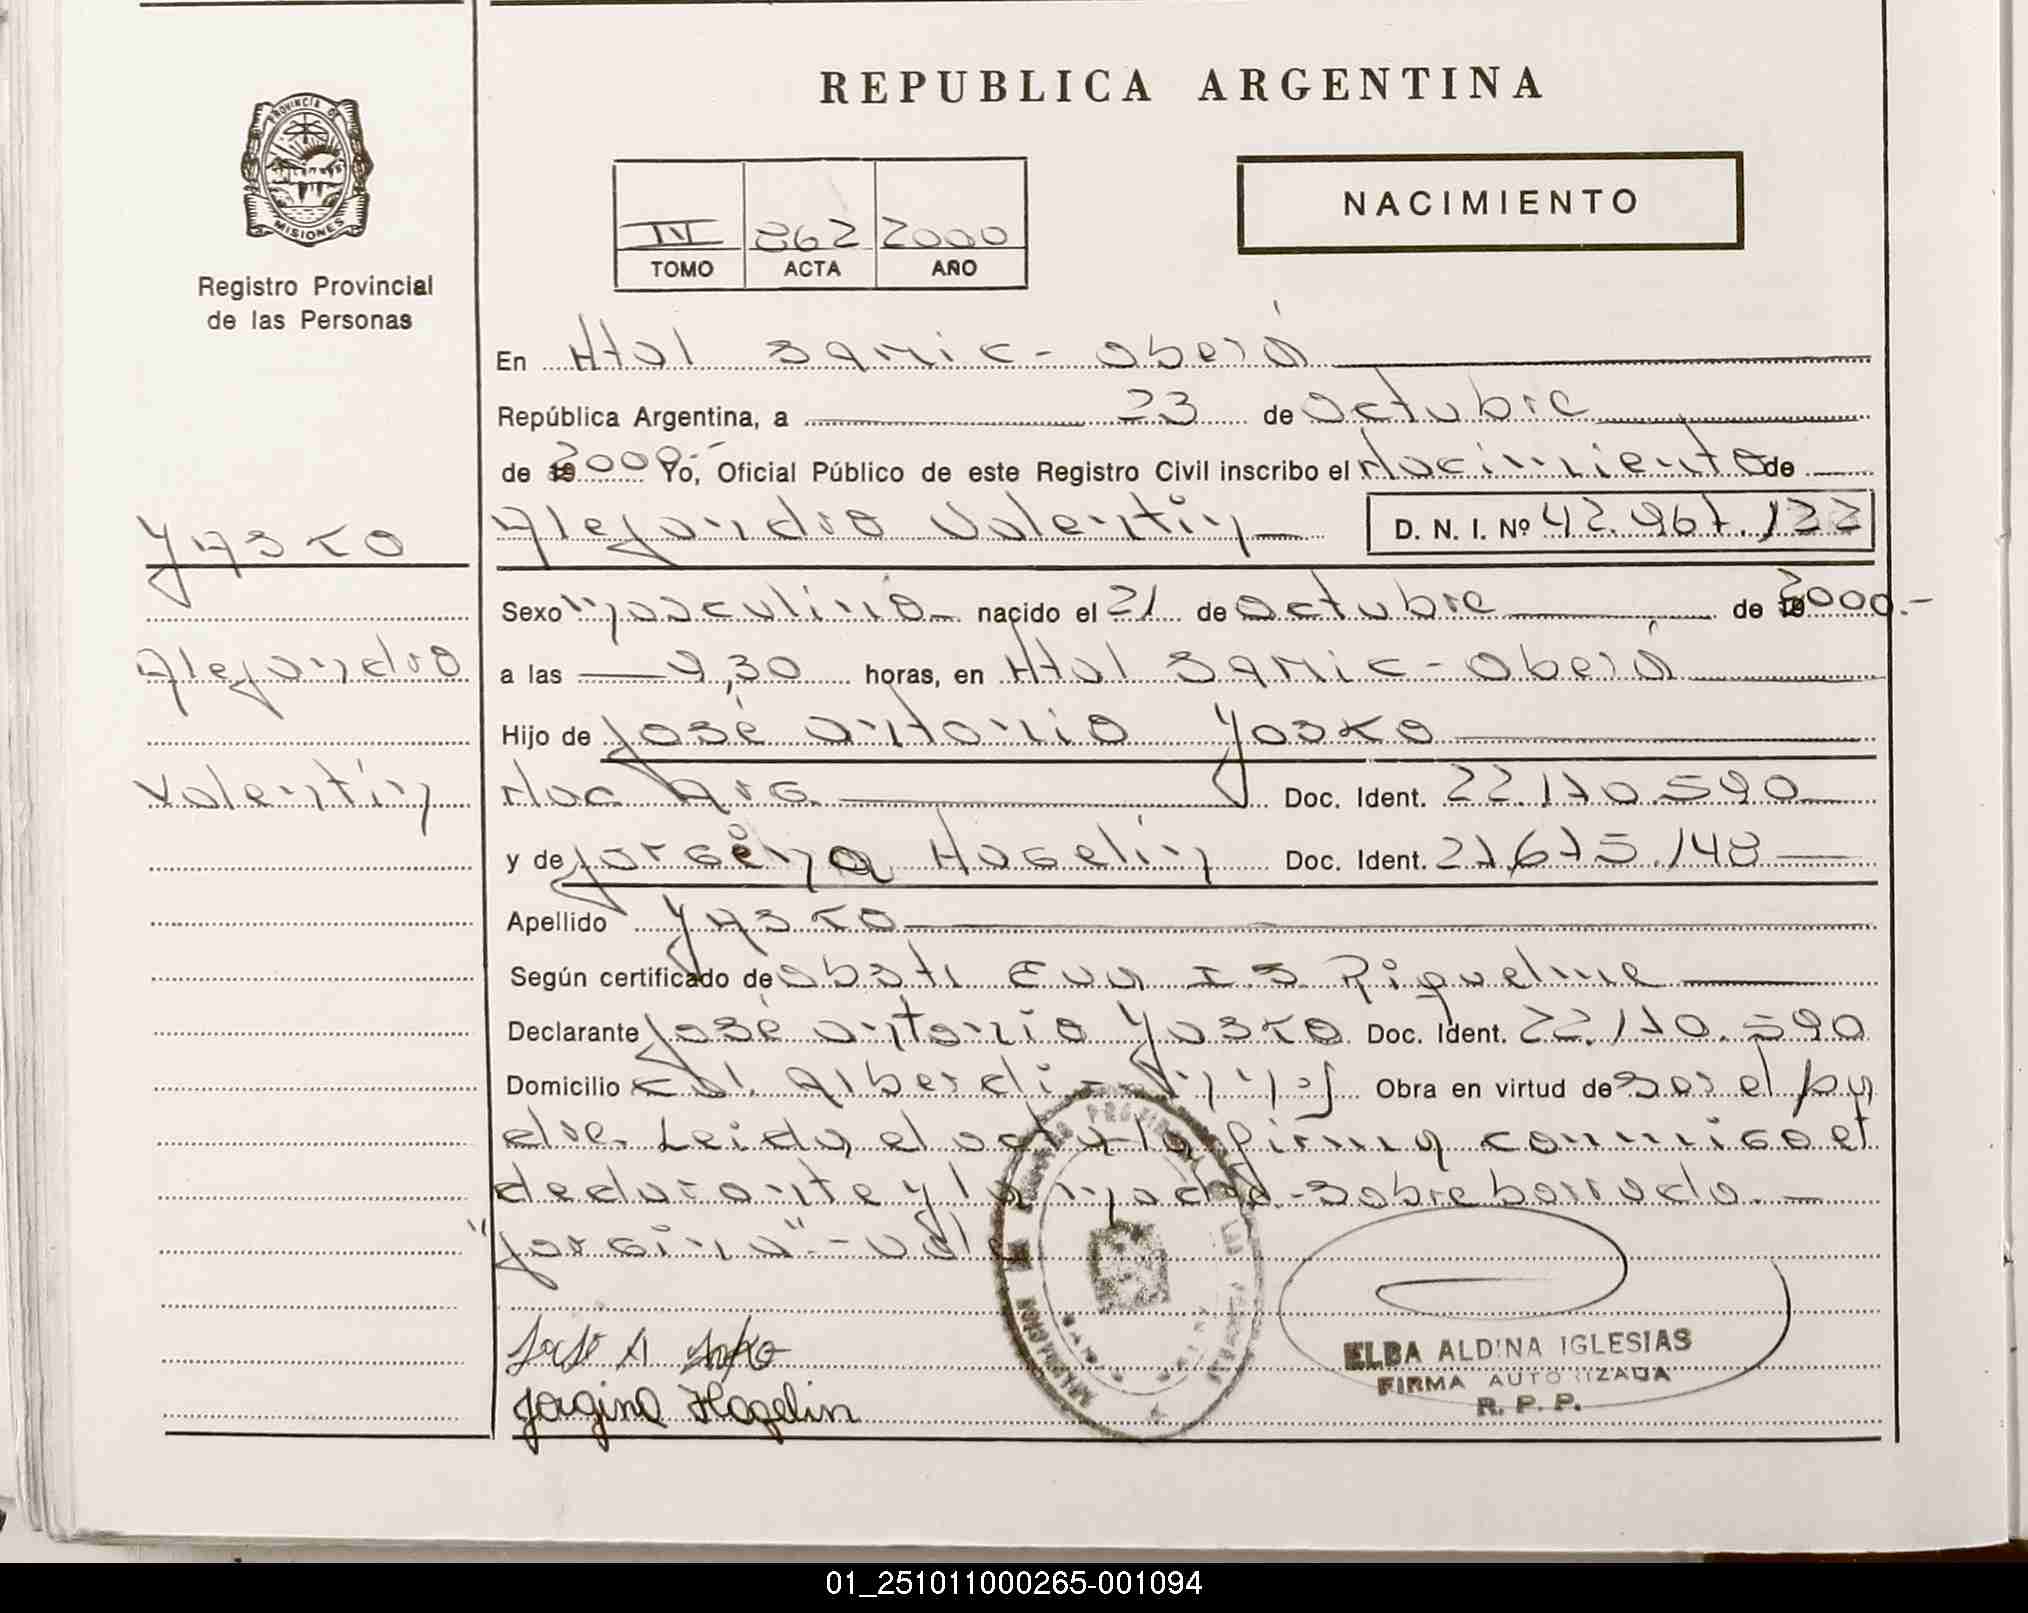 REPUBLICA ARGENTINA
PROVINCIA DE
MISIONES
Registro Provincial
de las Personas
NACIMIENTO
IV 862 2000
TOMO ACTA AÑO
En Htal SAMIC - Oberá
República Argentina, a 23 de Octubre
de 19 2000.- Yo, Oficial Público de este Registro Civil inscribo el Nacimiento de
YASKO
Alejandro Valentín D. N. I. Nº 42.967.122
Sexo Masculino nacido el 21 de Octubre de 19 2000.-
Alejandro
a las 9,30 horas, en Htal SAMIC - Oberá
Hijo de José Antonio Yasko
Valentín
Nac. Arg. Doc. Ident. 22.170.590
y de Jorgina Hagelin Doc. Ident. 27.675.148
Apellido YASKO
Según certificado de Obst. Eva I. S. Riquelme
Declarante José Antonio Yasko Doc. Ident. 22.170.590
Domicilio Col. Alberdi - Mnes Obra en virtud de ser el pa
dre. Leida el acta la firma conmigo el
declarante y la madre - Sobreborrado.-
"Jorgina" - vale
José A Yasko
Jorgina Hagelin
ELBA ALDINA IGLESIAS
FIRMA AUTORIZADA
R. P. P.
01_251011000265-001094